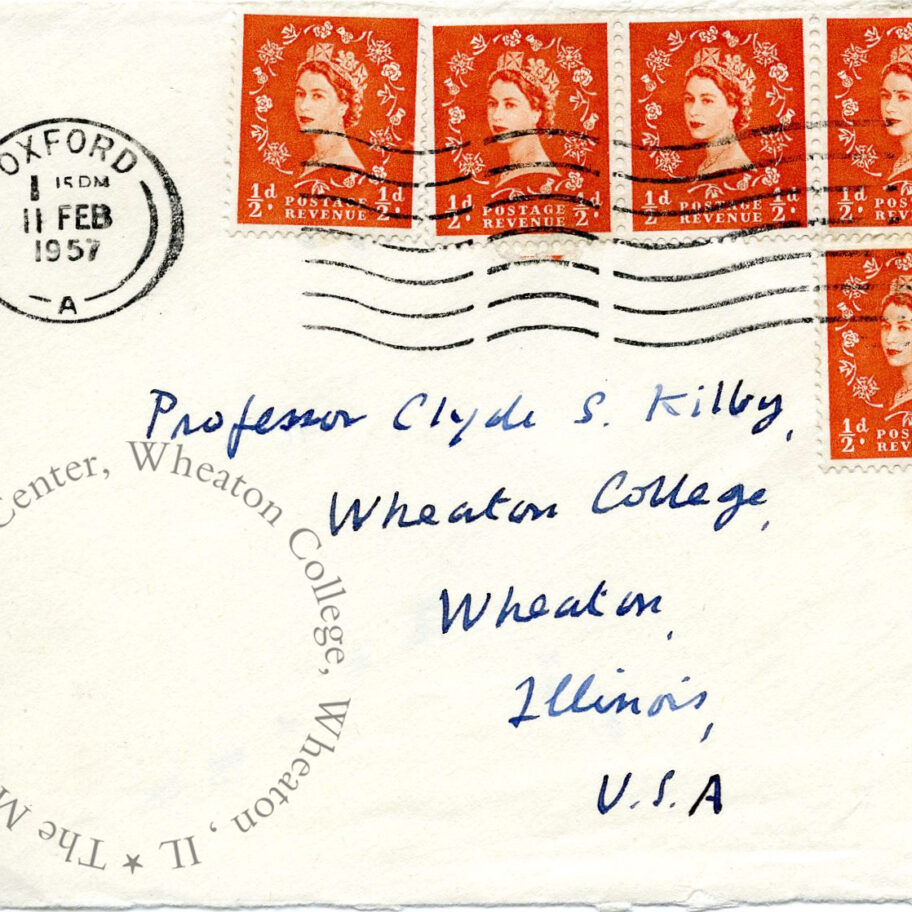 OXFORD
15 PM
11 FEB
1957
A
½d POSTAGE REVENUE ½d.
½d. POSTAGE REVENUE ½d.
½d POSTAGE REVENUE ½d.
½d. POS
REV
½d. POS
REV
Professor Clyde S. Kilby,
Wheaton College,
Wheaton,
Illinois,
U.S.A
The M
Center, Wheaton College, Wheaton, IL ★